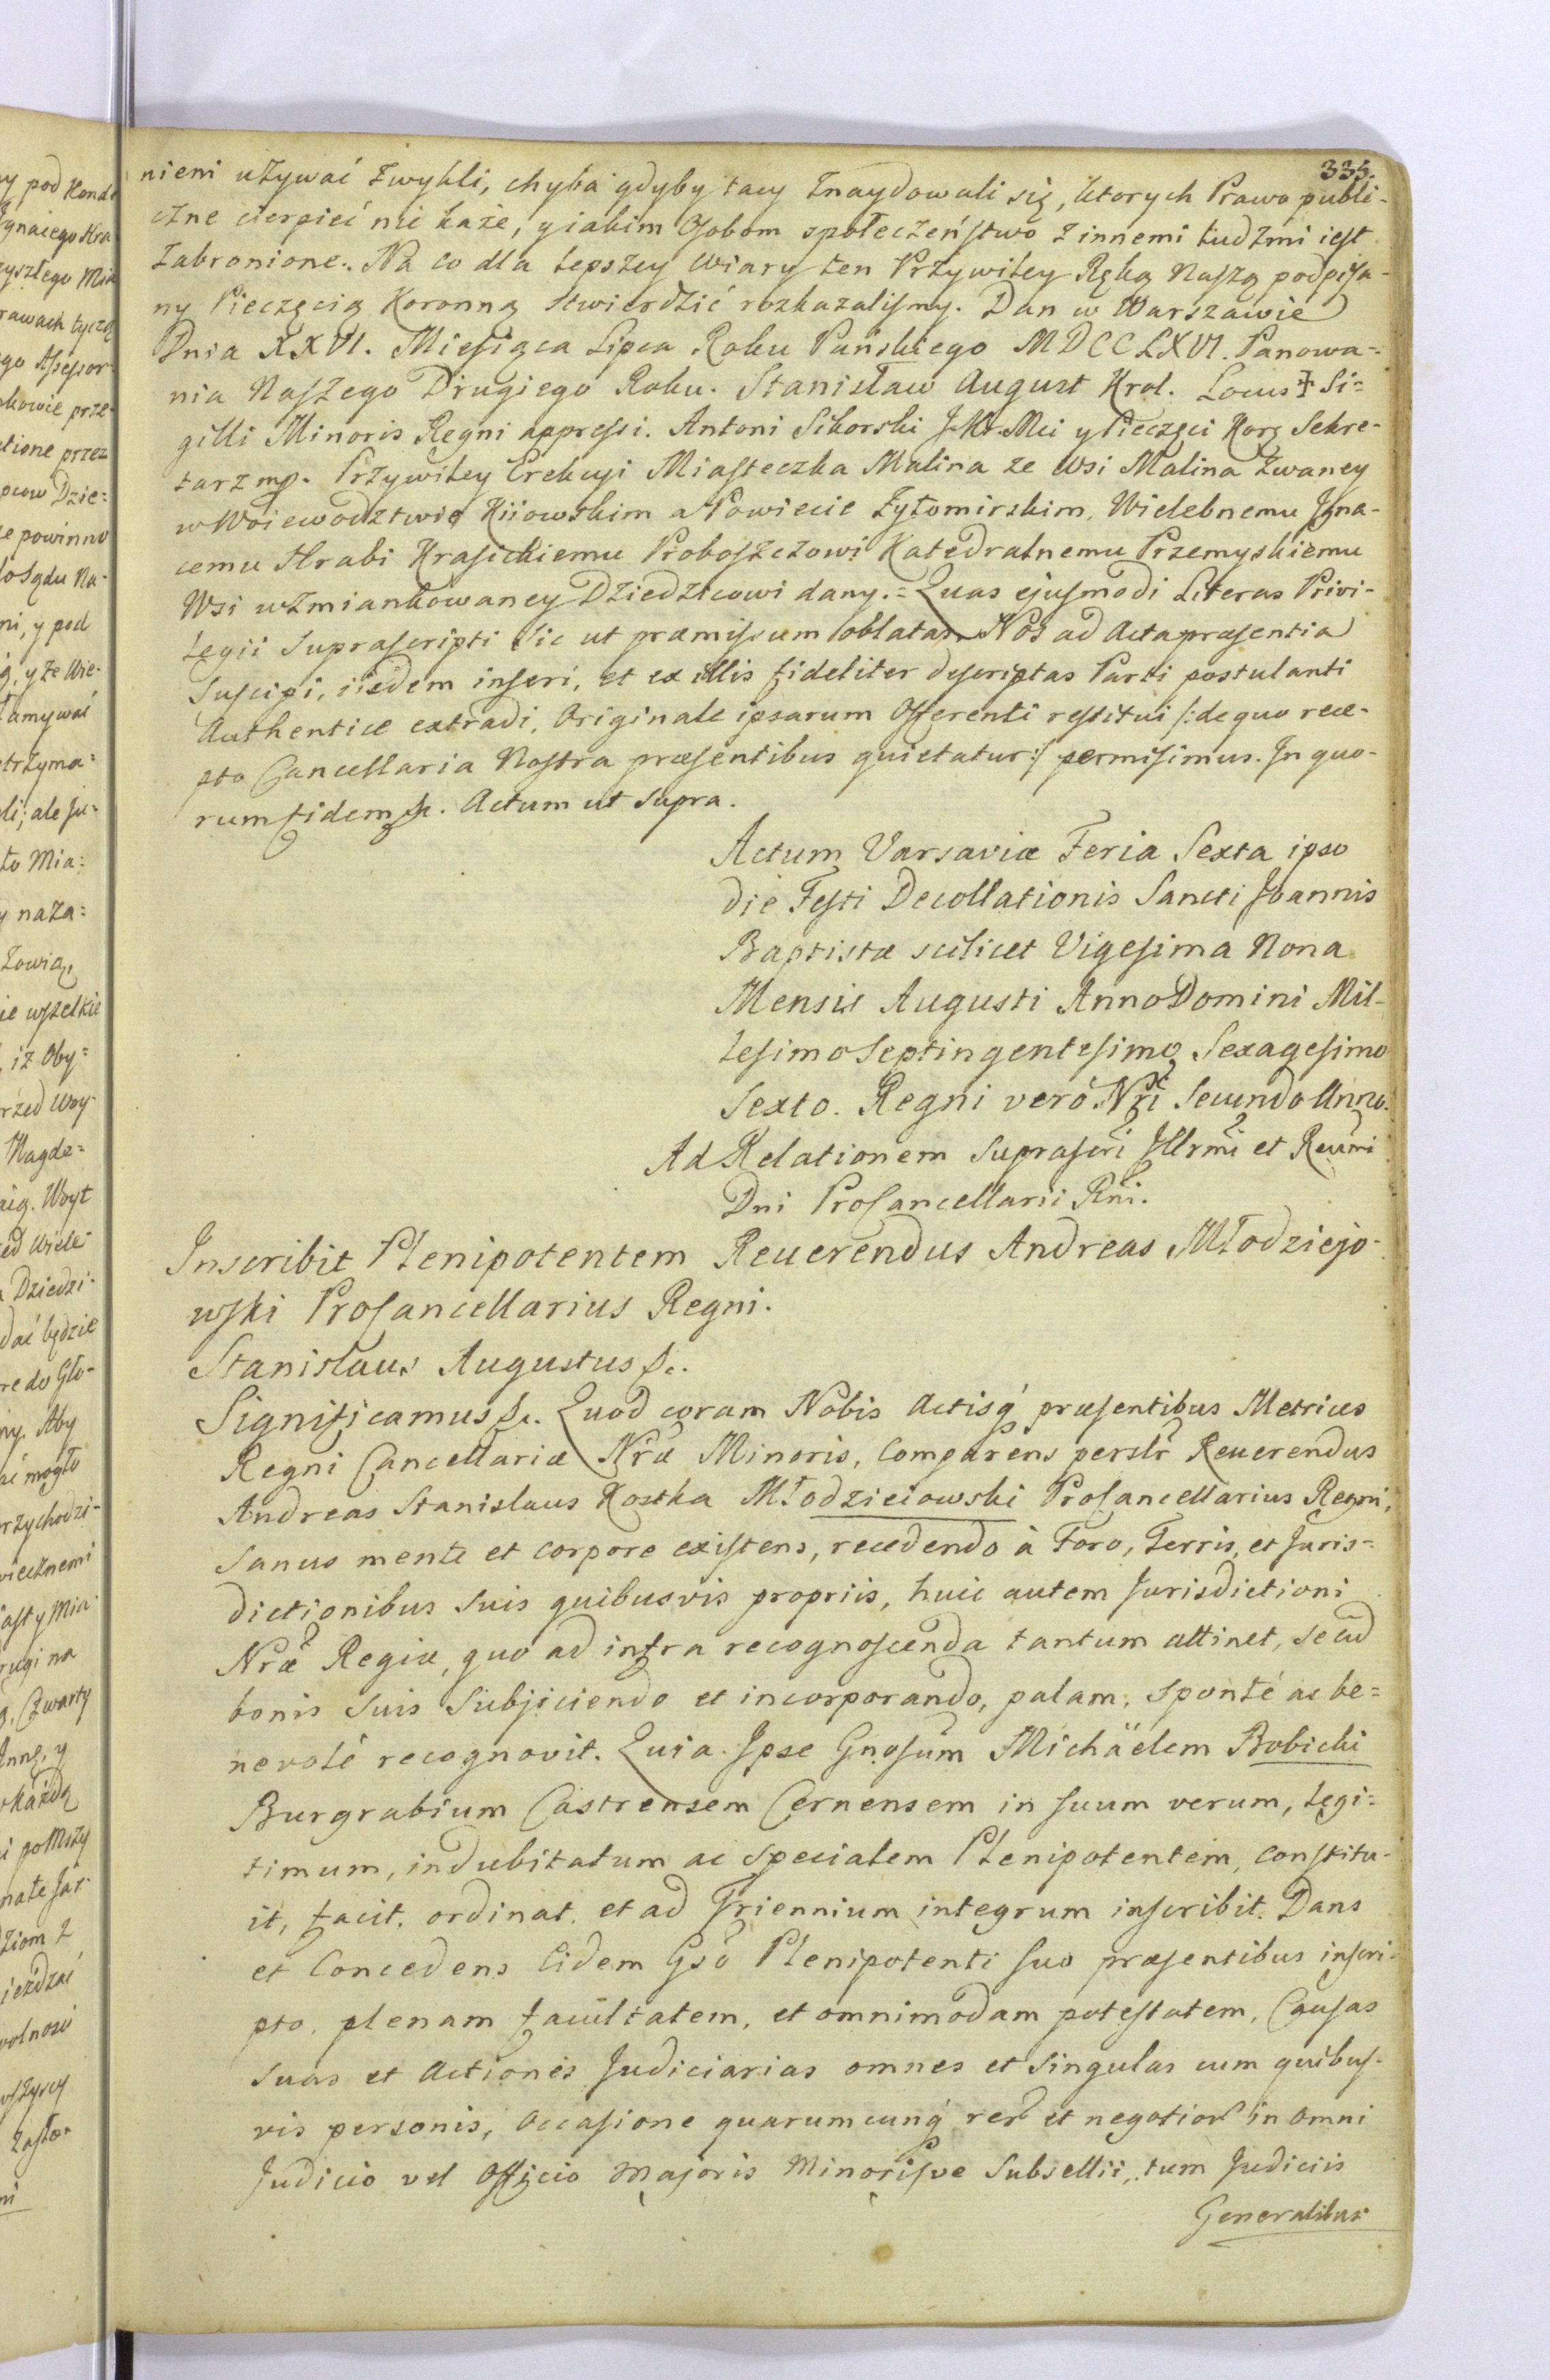 335.
nieni używać zwykli, chyba gdyby tacy znaydowali się, ktorych Prawo publi-
czne cierpieć nie każe, y iakim Osobom społeczeństwo z innemi ludzmi iest
zabronione. Na co dla lepszey wiary ten Przywiley Ręką Naszą podpisa-
ny Pieczęcią Koronną stwierdzić rozkazalismy. Dan w Warszawie
Dnia XXVI. Miesiąca Lipca Roku Pańskiego MDCCLXVI. Panowa=
nia Naszego Drugiego Roku. Stanisław August Krol. Locus Si=
gilli Minoris Regni appressi. Antoni Sikorski J.K.Mci y Pieczęci Kor. Sekre-
tarz mp. Przywiley Erekcyi Miasteczka Malina ze Wsi Malina zwaney
w Woiewodztwie Kiiowskim a Powiecie Żytomirskim, Wielebnemu Igna-
cemu Hrabi Krasickiemu Proboszczowi Katedralnemu Przemyskiemu
Wsi wzmiankowaney Dziedzicowi dany.= Quas ejusmodi Literas Privi-
legii suprascripti sic ut præmissum oblatas Nos ad Acta præsentia
suscipi, iisdem inseri, et ex illis fideliter descriptas Parti postulanti
Authentice extradi, Originale ipsarum Offerenti restitui /:de quo rece-
pto Cancellaria Nostra præsentibus quietatur:/ permisimus. In quo-
rum fidem &c. Actum ut supra.
Actum Varsaviæ Feria Sexta ipso
die Festi Decollationis Sancti Joannis
Baptistæ scilicet Vigesima Nona
Mensis Augusti Anno Domini Mil-
lesimo Septingentesimo Sexagesimo
Sexto. Regni verò Nri Secundo Anno.
Ad Relationem suprascri Illrmi et Reuemi
Dni ProCancellarii Rni.
Inscribit Plenipotentem Reuerendus Andreas Młodziejo-
wski ProCancellarius Regni.
Stanislaus Augustus &c.
Significamus &c. Quod coram Nobis Actisq præsentibus Metrices
Regni Cancellariæ Nræ Minoris, Comparens perslr Reuerendus
Andreas Stanislaus Kostka Młodzieiowski ProCancellarius Regni,
sanus mente et corpore existens, recedendo à Foro, Terris, et Juris=
dictionibus suis quibusvis propriis, huic autem Jurisdictioni
Nræ Regiæ, quo ad infra recognoscenda tantum attinet, se cũ
bonis suis subjiciendo et incorporando, palam, sponté ac be=
nevolé recognovit. Quia Ipse Gnosum Michäelem Bobicki
Burgrabium Castrensem Cernensem in suum verum, legi=
timum, indubitatum ac specialem Plenipotentem, constitu-
it, facit, ordinat, et ad Triennium integrum inscribit. Dans
et Concedens Eidem Gso Plenipotenti suo præsentibus inscri-
pto, plenam facultatem, et omnimodam potestatem, Causas
suas et Actiones Judiciarias omnes et singulas cum quibus-
vis personis, occasione quarumcunq rer et negotior in omni
Judicio vel Officio Majoris Minorisve Subsellii, tum Judiciis
Generalibus